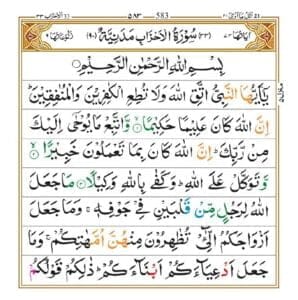 ۵۸۳ 583
سُوْرَةُ الْاَحْزَابِ مَدَنِيَّةٌ (۹۰) (۳۳)
بِسْمِ اللّٰهِ الرَّحْمٰنِ الرَّحِيْمِ
يٰۤاَيُّهَا النَّبِيُّ اتَّقِ اللّٰهَ وَلَا تُطِعِ الْكٰفِرِيْنَ وَالْمُنٰفِقِيْنَ ؕ
اِنَّ اللّٰهَ كَانَ عَلِيْمًا حَكِيْمًا ۙ وَّاتَّبِعْ مَا يُوْحٰۤى اِلَيْكَ
مِنْ رَّبِّكَ ؕ اِنَّ اللّٰهَ كَانَ بِمَا تَعْمَلُوْنَ خَبِيْرًا ۙ
وَّتَوَكَّلْ عَلَى اللّٰهِ ؕ وَكَفٰى بِاللّٰهِ وَكِيْلًا مَا جَعَلَ
اللّٰهُ لِرَجُلٍ مِّنْ قَلْبَيْنِ فِيْ جَوْفِهٖ ۚ وَمَا جَعَلَ
اَزْوَاجَكُمُ الّٰٓـِٔيْ تُظٰهِرُوْنَ مِنْهُنَّ اُمَّهٰتِكُمْ ۚ وَمَا
جَعَلَ اَدْعِيَآءَكُمْ اَبْنَآءَكُمْ ؕ ذٰلِكُمْ قَوْلُكُمْ